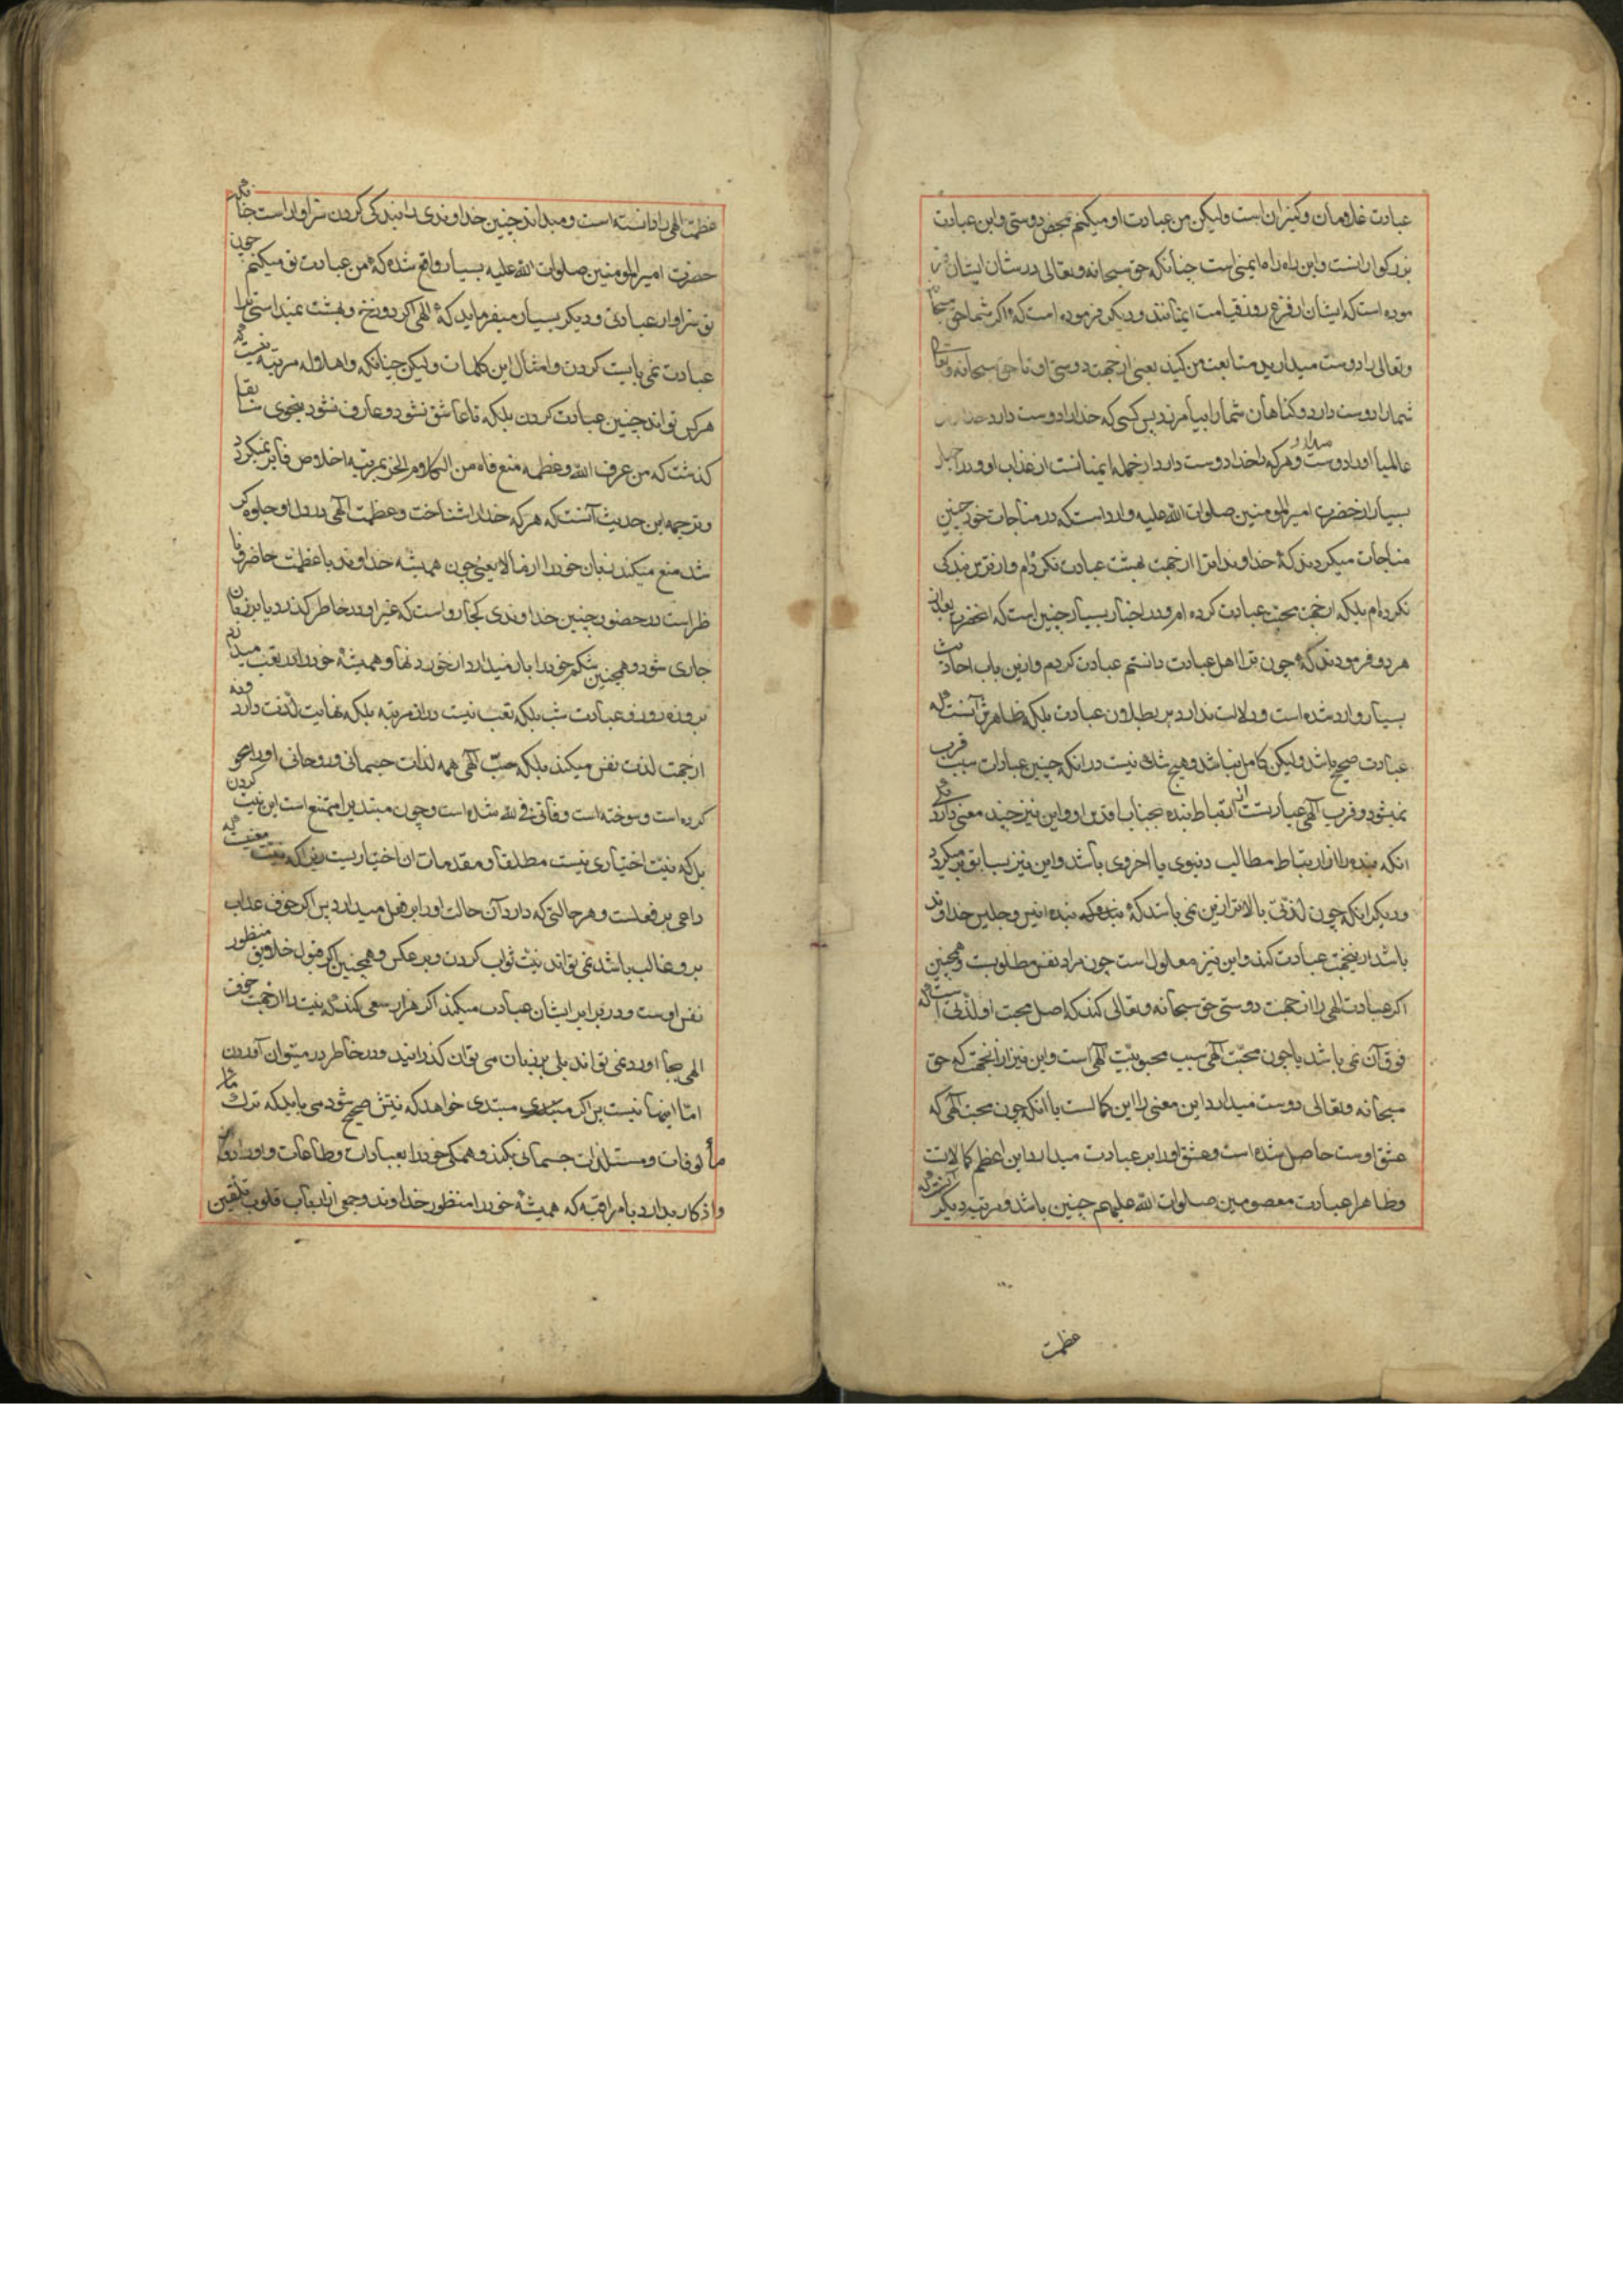 عبادت غلامان و کنیزان است ولیکن من عبادت او میکنم بمحض دوستی و این عبادت
بزرکوارانست و این راه راه ایمنی است چنانکه حق سبحانه و تعالی در شان ایشان فر
موده است که ایشان از فزع روز قیامت ایمنانند و دیکر فرموده است که اکر شما حق سبحا
و تعالی را دوست میدارید متابعت من کنید یعنی از جهت دوستی او تا حق سبحانه و تعالی
شما را دوست دارد و کناهان شما را بیامرزد پس کسی که خدا را دوست دارد
عالمیان او را دوست میدارد و هر که را خدا دوست دارد از جمله ایمنانست از عذاب او و در اخبار
بسیار از حضرت امیر المومنین صلوات الله علیه وارد است که در مناجات خود چنین
مناجات میکردند که خداوندا ترا از جهت بهشت عبادت نکرده‌ام و از ترس بندکی
نکرده‌ام بلکه از جهت محبت عبادت کرده ام و در اخبار بسیار چنین است که آنحضرت
هر دو فرمودند که چون ترا اهل عبادت دانستم عبادت کردم و ازین باب احادیث
بسیار وارد شده است و دلالت ندارد بر بطلان عبادت بلکه ظاهرش آنست که
عبادت صحیح باشد ولیکن کامل نباشد و هیچ شک نیست در انکه چنین عبادات سبب قرب
نمیشود و قرب الهی عبارتست از ارتباط بنده بجناب اقدس او و این نیز چند معنی دارد یکی
انکه بنده را از ارتباط مطالب دنیوی یا اخروی باشد و این نیز بسابق بر میکردد
و دیکر انکه چون لذتی بالاتر ازین نمی باشد که بنده که بنده انیس و جلیس خداوند
باشد ازینجهت عبادت کند و این نیز معلول است چون مراد نفس مطلوبست و همچنین
اکر عبادت الهی را از جهت دوستی حق سبحانه و تعالی کند که اصل محبت او لذتی است که
فوق آن نمی باشد یا چون محبّت الهی سبب محبوبیّت الهی است و این نیز از آنجهت که حق
سبحانه و تعالی دوست میدارد این معنی را این کمالست یا انکه چون محبت الهی که
عشق اوست حاصل شده است و عشق او را بر عبادت میدارد این اعظم کمالات
و ظاهرا عبادت معصومین صلوات الله علیهم چنین باشد و مرتبه دیکر آنست که
عظمت
عظمت الهی را دانسته است و میداند چنین خداوندی را بندکی کردن سزاوار است چنانکه
حضرت امیر المومنین صلوات الله علیه بسیار واقع شده که من عبادت تو میکنم چون
تو سزاوار عبادتی و دیکر بسیار میفرماید که الهی اکر دوزخ و بهشت نمیداستی ترا
عبادت نمی بایست کردن و امثال این کلمات ولیکن چنانکه و اهل اول مرتبه نیست که
هر کس تواند چنین عبادت کردن بلکه تا عاشق نشود و عارف نشود بنحوی سابقا
کذشت که من عرف الله و عظمه منع فاه من الکلام الخ بمرتبه اخلاص فایز نمیکردد
و ترجمه این حدیث آنست که هر که خدا را شناخت و عظمت الهی در دل او جلوه‌کر
شد منع میکند زبان خود را از مالا یعنی چون همیشه خداوند با عظمت حاضر و نا
ظر است در حضور چنین خداوندی کجا رواست که غیر او در خاطر کذرد یا بر زبان
جاری شود و همچنین شکم خود را باز میدارد از خوردنها و همیشه خود را در تعب میدارد
بروزه روز و عبادت شب بلکه تعب نیست در آن مرتبه بلکه نهایت لذت دارد و نه
از جهت لذت نفس میکند بلکه حبّ الهی همه لذات جسمانی و روحانی او را محو
کرده است و سوخته است و فانی فی الله شده است و چون مبتدیرا ممتنع است این نیت کردن
بل که نیت اختیاری نیست مطلقا و مقدمات ان اختیاریست زیرا که نیت معنیست که
داعی بر فعلست و هر حالتی که دارد آن حالت او را بر فعل میدارد پس اکر خوف عذاب
برو غالب باشد نمی تواند نیت ثواب کردن و بر عکس و همچنین اکر قبول خلایق منظور
نفس اوست و در برابر ایشان عبادت میکند اکر هزار سعی کند که نیت را از جهت خوف
الهی بجا اورد نمی تواند بلی بر زبان می توان کذرانید و در خاطر در میتوان آوردن
امّا اینها نیست پس اکر مبتدی مبتدی خواهد که نیتش صحیح شود می باید که ترک
مألوفات و مستلذات جسمانی بکند و همکی خود را بعبادات و طاعات و اوراد
و اذکار بدارد با مراقبه که همیشه خود را منظور خداوند و جمعی از ارباب قلوب تلقین